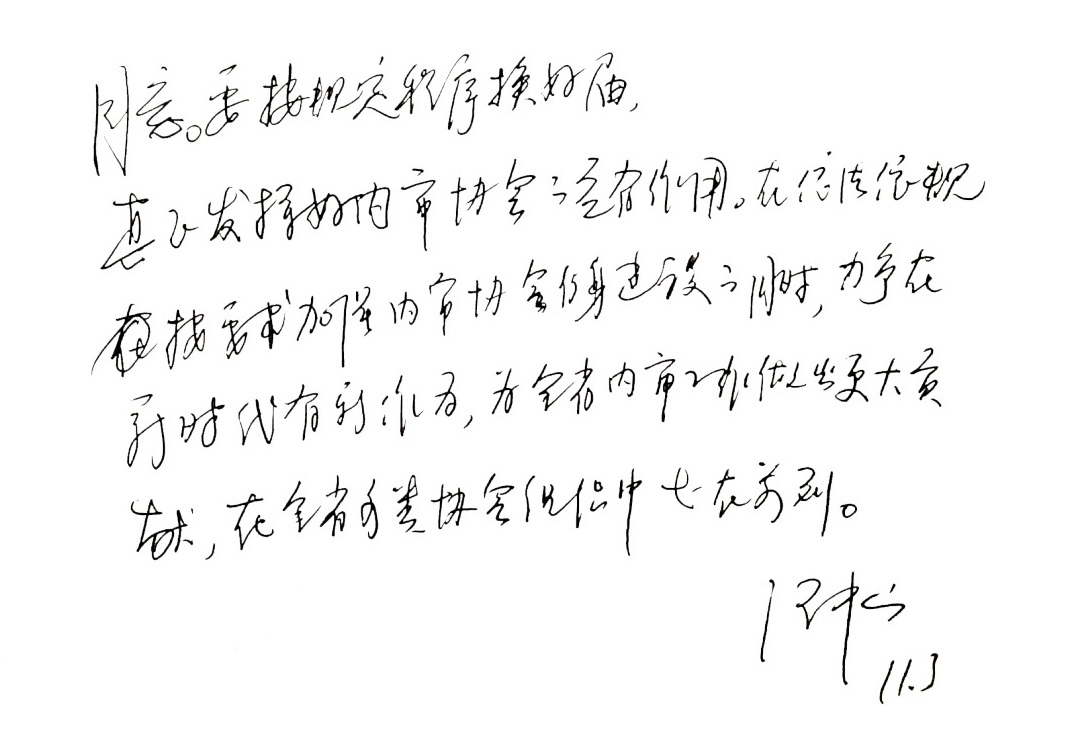 同意。要按规定程序换好届,
真正发挥好内审协会应有作用。在依法依规
按要求加强内审协会自身建设之同时,力争在
新时代有新作为,为全省内审工作做出更大贡
献,在全省各类协会组织中走在前列。
11.3